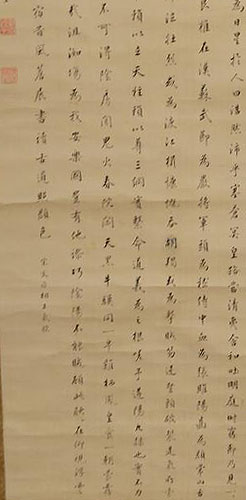 為日星於人曰浩然沛乎塞蒼冥皇路當清夷含和吐明庭時窮節乃見一
良椎在漢蘇武節為嚴將軍頭為嵇侍中血為張睢陽齒為顏常山舌
泣壯烈或為渡江楫慷慨吞胡羯或為擊賊笏逆豎頭破裂是氣所
賴以立天柱賴以尊三綱實繫命道義為之根嗟予遘陽九隸也實不力
不可得陰房闃鬼火春院閟天黑牛驥同一皁雞栖鳳凰食一朝蒙霧
哉沮洳場為我安樂國豈有他繆巧陰陽不能賊顧此耿耿在仰視浮雲
宿昔風簷展書讀古道照顏色
宋文丞相正氣歌